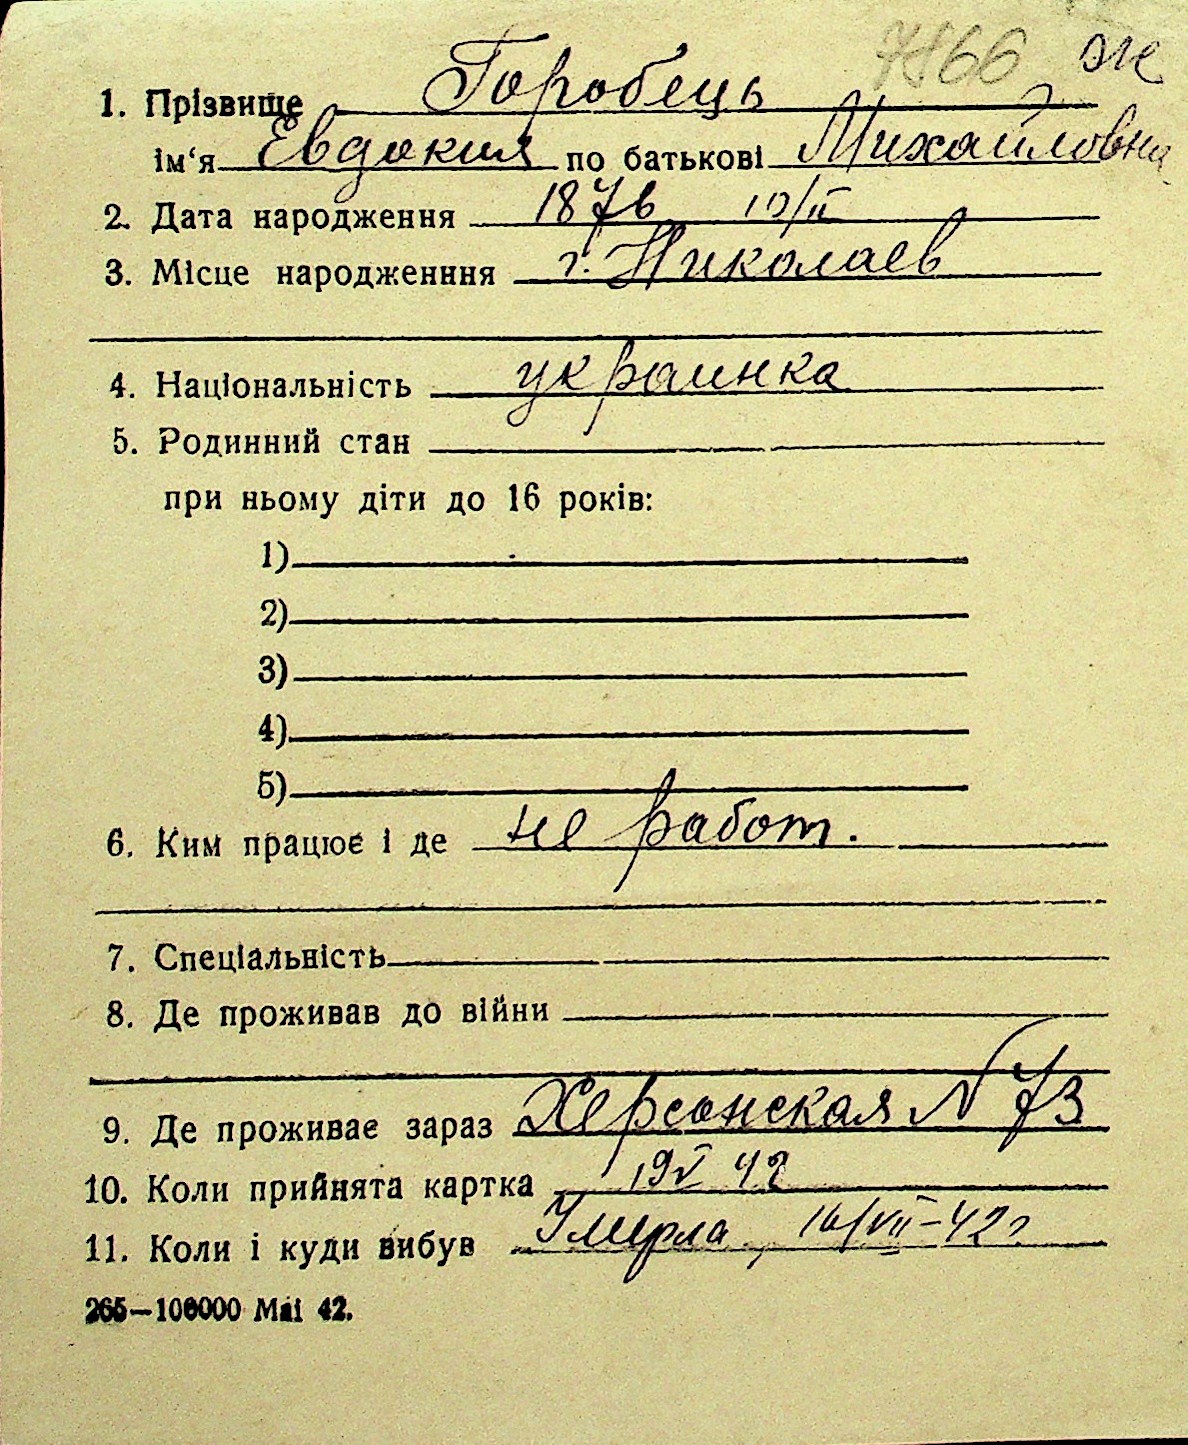 7866 эж
1. Прізвище Горобець
ім‘я Евдокия по батькові Михайловна
2. Дата народження 1876 10/II
3. Місце народженння г. Николаев
4. Національність украинка
5. Родинний стан
при ньому діти до 16 років:
1)
2)
3)
4)
5)
6. Ким працює і де не работ.
7. Спеціальність
8. Де проживав до війни
9. Де проживає зараз Херсонская N 73
10. Коли прийнята картка 19 V 42
11. Коли і куди вибув Умерла, 16/VII-42г
265—100000 Маі 42.